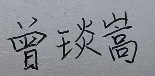 曾琰嵩